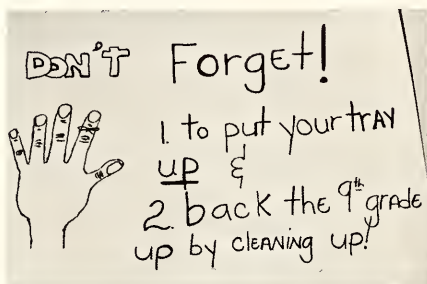 DON'T Forget!
1. to put your tray
up &
2. back the 9th grade
up by cleaning up!